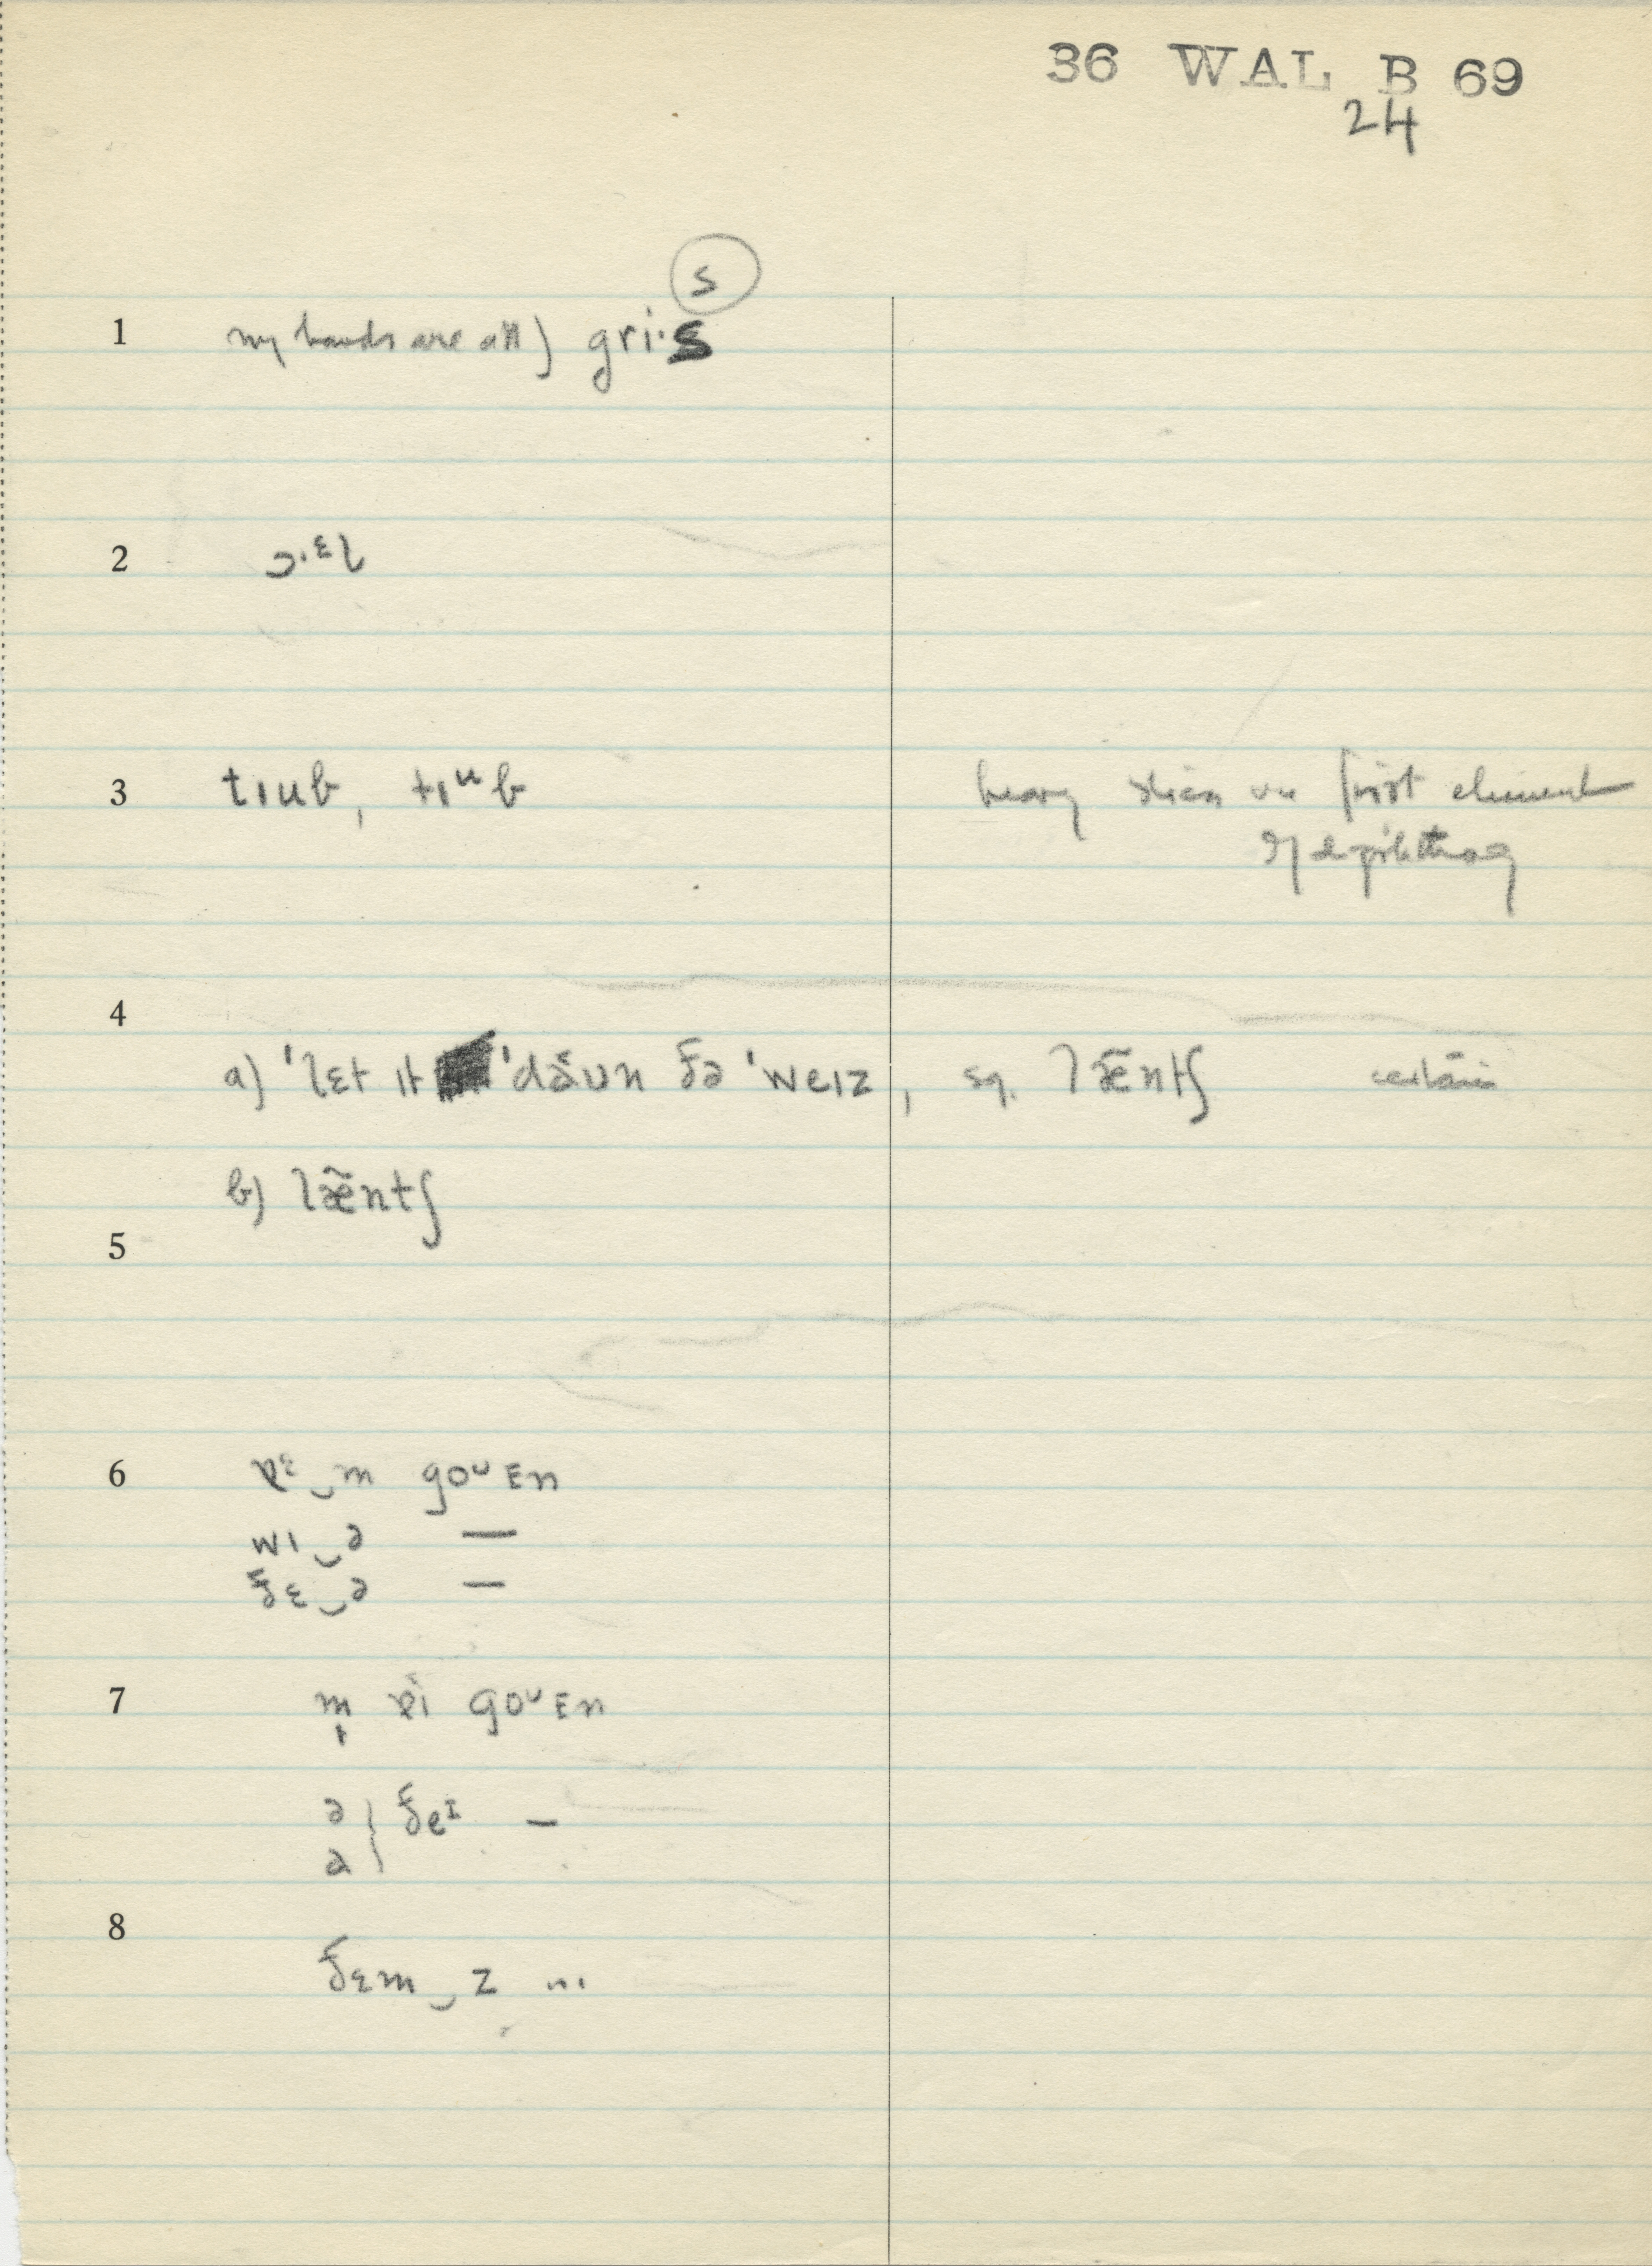 36 WAL B 69
24
s
1 my hands are all) gri·s
2 ɔ·ɛl
3 tɪub, tɪᵘb heavy stress on first element
of diphthong
4
a) 'lɛt ɪt 'dăʊn ðə 'weɪz, sq. læ̃ntʃ certain
b) læ̃ntʃ
5
6 ɐᵋ‿m goᴜɛn
wɪ‿ə —
ðɛ‿ə —
7 m̩ ɐi goᴜɛn
ə } ðeᶦ —
a
8
ðɛm‿z ...